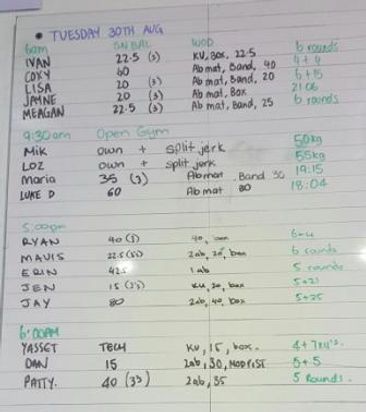 • TUESDAY 30TH AUG
6am SN BAL WOD 6 rounds
IVAN 22.5 (3) KU, Box, 22.5 4+4
COXY 60 Ab mat, Band, 40 6+15
LISA 20 (3) Ab mat, Band, 20 21:06
JAYNE 20 (3) Ab mat, Box 6 rounds
MEAGAN 22.5 (3) Ab mat, Band, 25
9:30am Open Gym
MIK own + split jerk 50kg
LOZ own + split jerk 55kg
Maria 35 (3) Abmat Band 30 19:15
LUKE D 60 Abmat 80 18:04
5:00pm
RYAN 40 (3) 40, 6+4
MAVIS 22.5 2ab, 20, box 6 rounds
ERIN 42.5 1ab 5 rounds
JEN 15 KU, 20, box 5+21
JAY 80 2ab, 40, box 5+25
6:00PM
YASSET TECH KU, 15, box. 4+7
DAN 15 2ab, 30, 5+5
PATTY. 40 2ab, 35 5 Rounds.